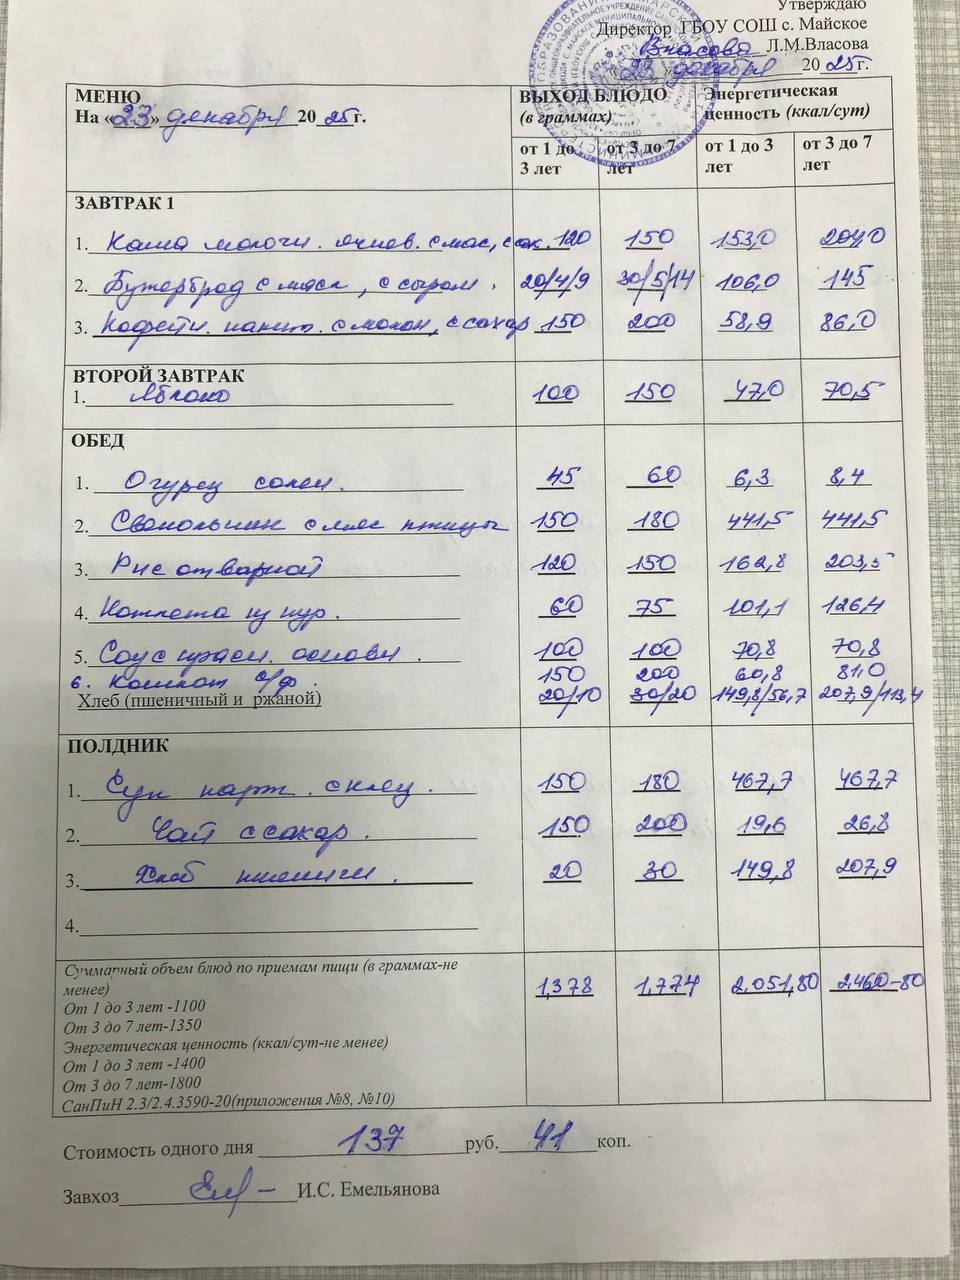 Утверждаю
Директор ГБОУ СОШ с. Майское
Власова Л.М.Власова
«23» декабря 2025г.
МЕНЮ
На «23» декабря 2025г.
ВЫХОД БЛЮДО (в граммах)
Энергетическая ценность (ккал/сут)
от 1 до 3 лет от 3 до 7 лет от 1 до 3 лет от 3 до 7 лет
ЗАВТРАК 1
1. Каша молочн. ячнев. с мас, с сах. 120 150 153,0 204,0
2. Бутерброд с масл, с сыром. 20/4/9 30/5/14 106,0 145
3. Кофейн. напит. с молок, с сахар 150 200 58,9 86,0
ВТОРОЙ ЗАВТРАК
1. Яблоко 100 150 47,0 70,5
ОБЕД
1. Огурец солен. 45 60 6,3 8,4
2. Свекольник с мяс птицы 150 180 441,5 441,5
3. Рис отварной 120 150 162,8 203,5
4. Котлета из кур. 60 75 101,1 126,4
5. Соус красн. основн. 100 100 70,8 70,8
6. Компот с/ф. 150 200 60,8 81,0
Хлеб (пшеничный и ржаной) 20/10 30/20 149,8/56,7 207,9/113,4
ПОЛДНИК
1. Суп карт. с клец. 150 180 467,7 467,7
2. Чай с сахар. 150 200 19,6 26,8
3. Хлеб пшеничн. 20 30 149,8 207,9
4.
Суммарный объем блюд по приемам пищи (в граммах-не
менее) 1,378 1,774 2.051,80 2.460-80
От 1 до 3 лет -1100
От 3 до 7 лет-1350
Энергетическая ценность (ккал/сут-не менее)
От 1 до 3 лет -1400
От 3 до 7 лет-1800
СанПиН 2.3/2.4.3590-20(приложения №8, №10)
Стоимость одного дня 137 руб. 41 коп.
Завхоз И.С. Емельянова